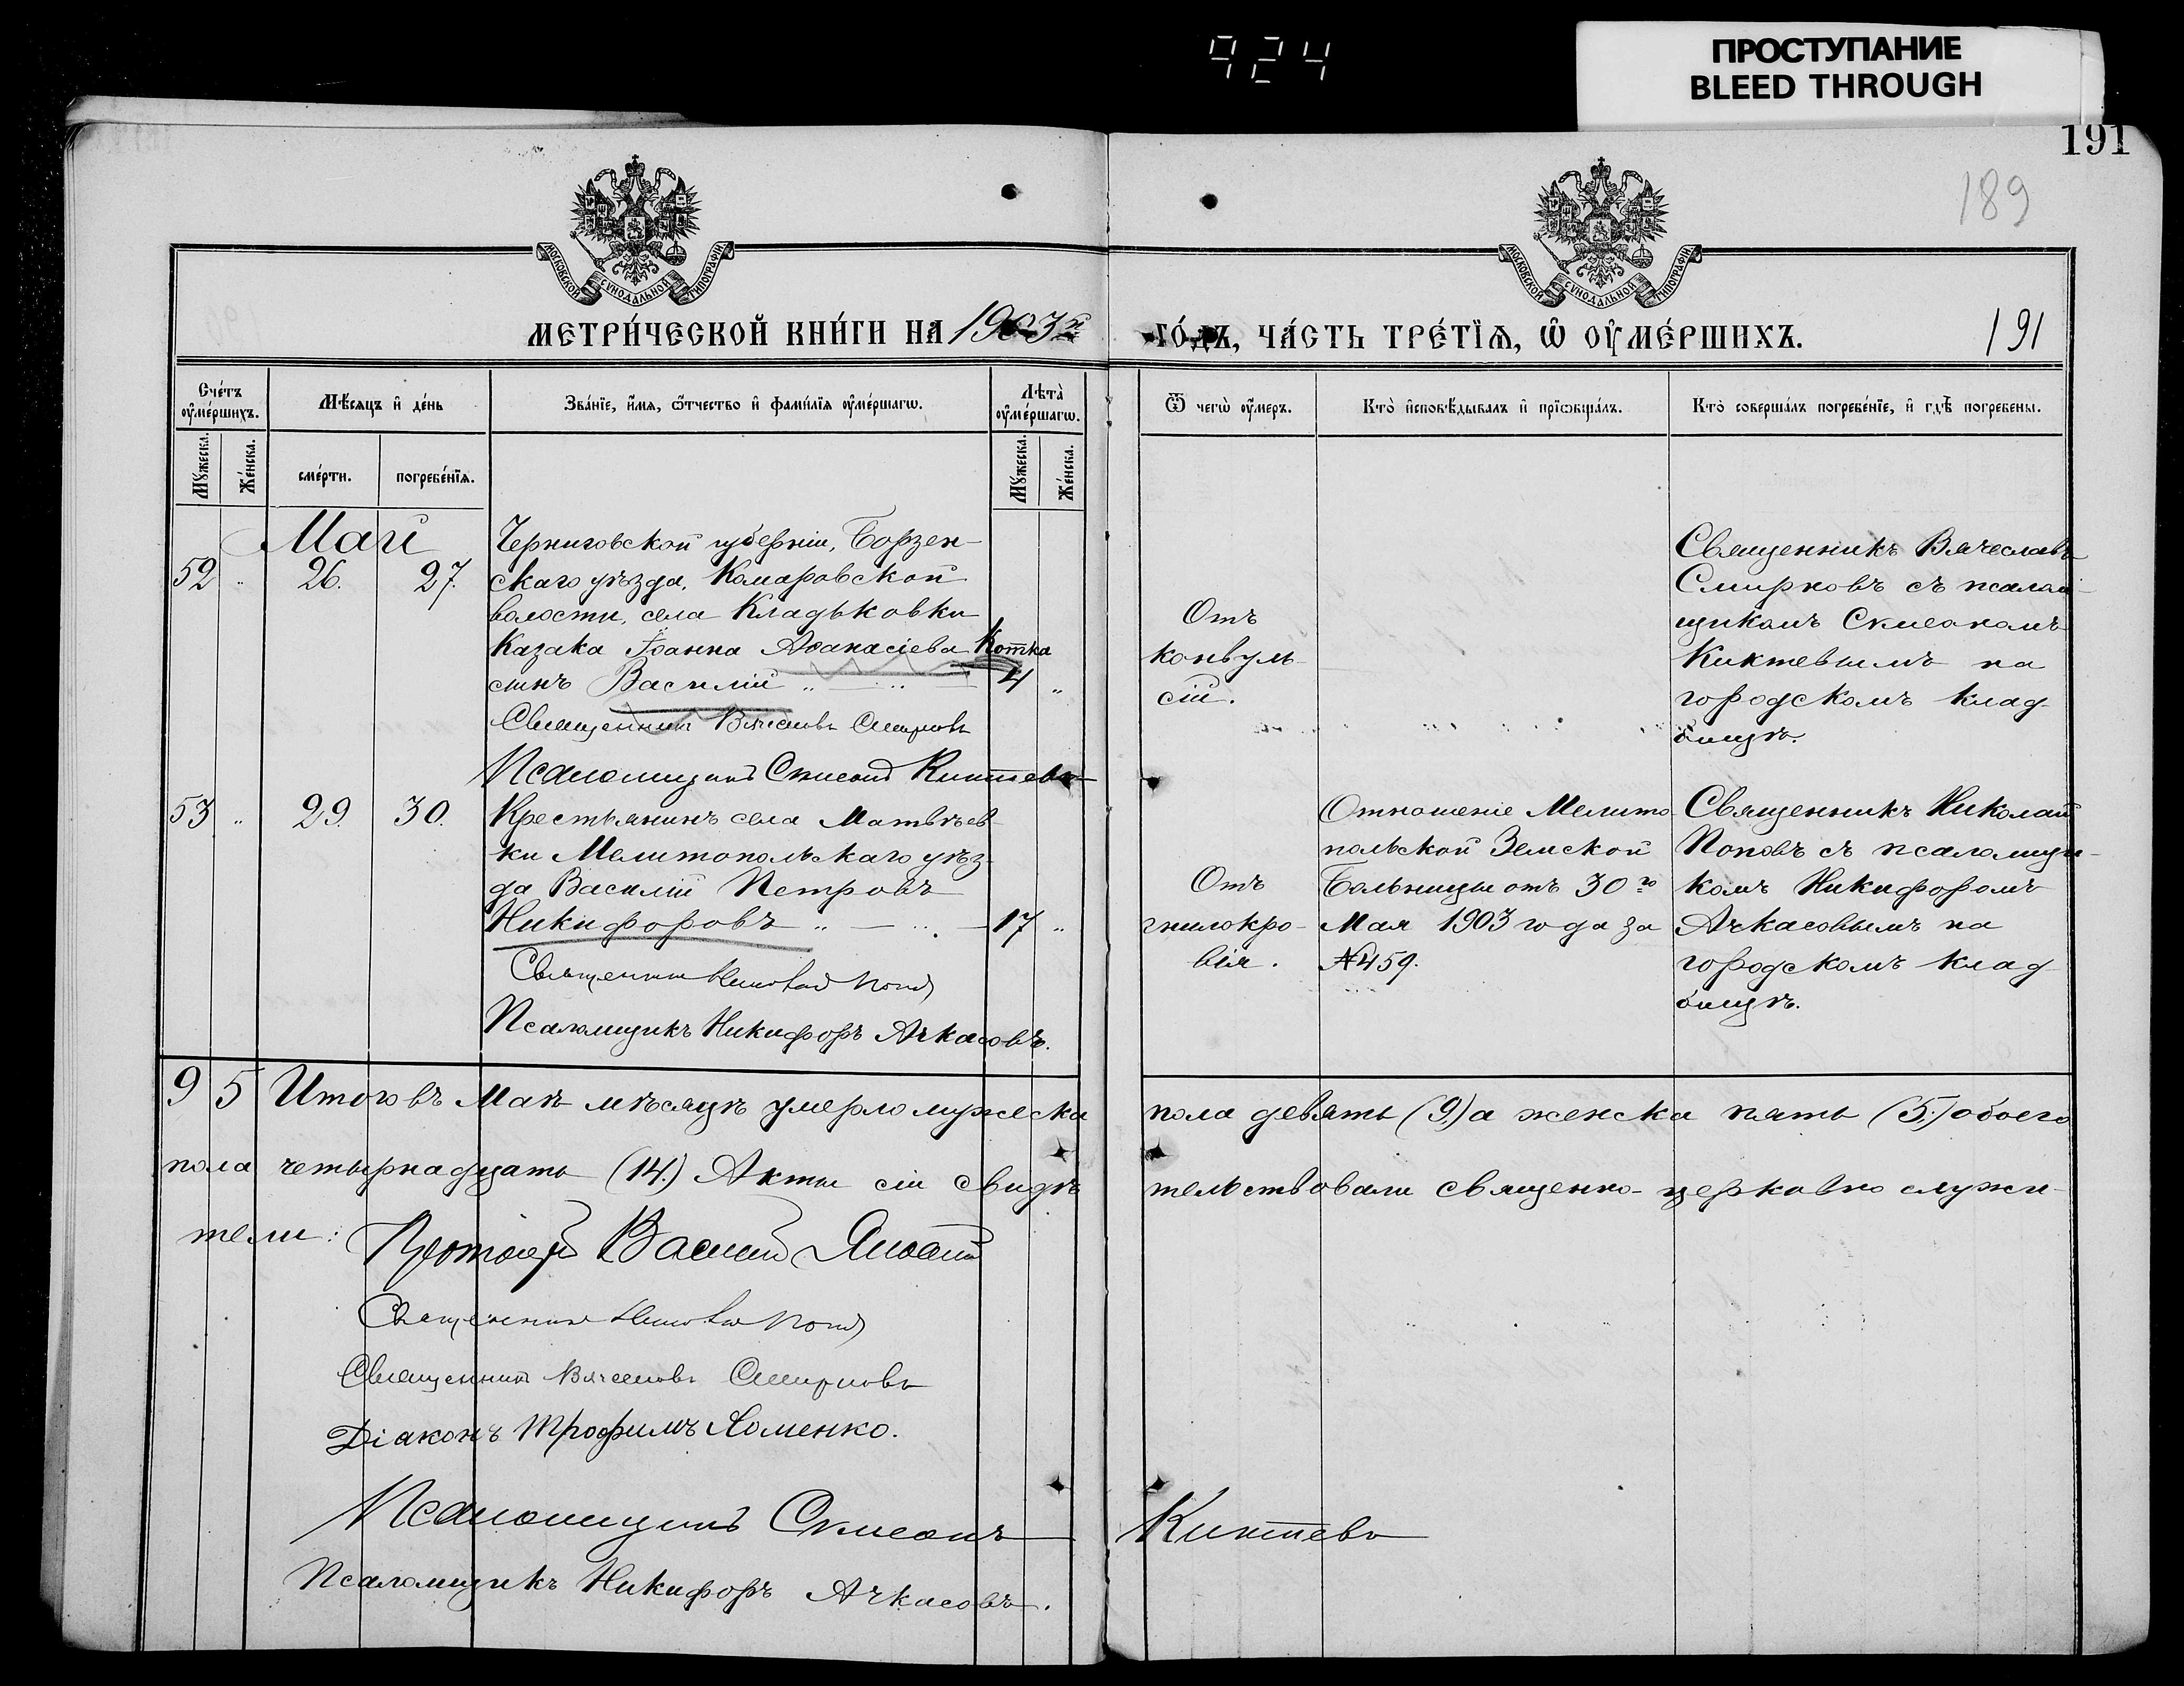 924
ПРОСТУПАНИЕ
BLEED THROUGH
191
189
МОСКОВСКОЙ СУНОДАЛЬНОЙ ТИПОГРАФІИ
МОСКОВСКОЙ СУНОДАЛЬНОЙ ТИПОГРАФІИ
МЕТРИ́ЧЕСКОЙ КНИ́ГИ НА 1903й ГО́ДЪ, ЧА́СТЬ ТРЕ́ТЇѦ, Ѡ ОУ҆МЕ́РШИХЪ.
191
Сче́тъ оу҆ме́ршихъ.
Мѣ́сяцъ и҆ де́нь
Зва́нїе, и҆́мѧ, ѻ҆́тчество и҆ фами́лїѧ оу҆ме́ршагѡ.
Лѣта̀ оу҆ме́ршагѡ.
Ѿ чегѡ̀ оу҆́меръ.
Кто̀ и҆сповѣ́дывалъ и҆ прїѡбща́лъ.
Кто̀ соверша́лъ погребе́нїе, и҆ гдѣ̀ погребены.
Мꙋ́жеска.
Же́нска.
сме́рти.
погребе́нїѧ.
Мꙋ́жеска.
Же́нска.
Май
52 " 26. 27.
Черниговской губерніи, Борзен-
скаго уѣзда, Комаровской
волости, села Кладьковки
Казака Іоанна Аѳанасіева Котка
сынъ Василій " — " — 4 "
Священникъ Вячеславъ Смирновъ
Псаломщикъ Сѵмеонъ Киктевъ
Отъ
конвуль-
сій.
Священникъ Вячеславъ
Смирновъ съ псалом-
щикомъ Сѵмеономъ
Киктевымъ на
городскомъ клад-
бищѣ.
53 " 29. 30.
Крестьянинъ села Матвѣев-
ки Мелитопольскаго уѣз-
да Василій Петровъ
Никифоровъ " — " — 17 "
Священникъ Николай Поповъ
Псаломщикъ Никифоръ Ачкасовъ.
Отъ
гнилокро-
вія.
Отношеніе Мелито-
польской Земской
Больницы отъ 30го
Мая 1903 года за
№459.
Священникъ Николай
Поповъ съ псаломщи-
комъ Никифоромъ
Ачкасовымъ на
городскомъ клад-
бищѣ.
9 5 Итого въ Маѣ мѣсяцѣ умерло мужеска пола девять (9) а женска пять (5) обоего
пола четырнадцать (14.) Акты сіи свидѣтельствовали священно-церковно служи-
тели: Протоіерей Василій
Священникъ Николай Поповъ
Священникъ Вячеславъ Смирновъ
Діаконъ Трофимъ Хоменко.
Псаломщикъ Сѵмеонъ Киктевъ
Псаломщикъ Никифоръ Ачкасовъ.